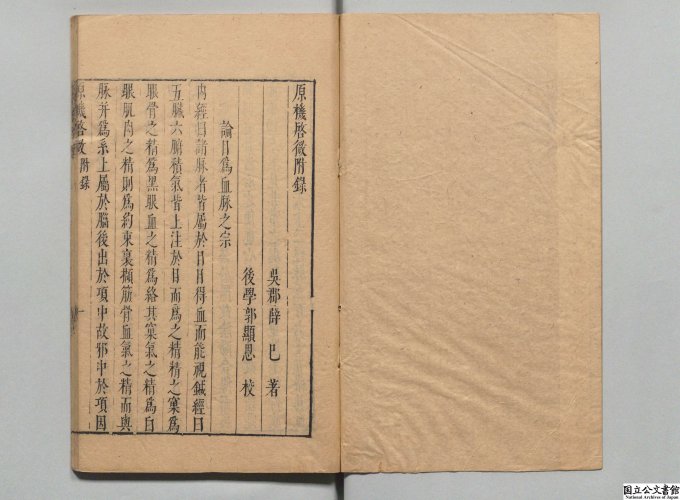 原機啓微附錄
吳郡薛 已 著
後學郭顯恩 校
論目爲血脉之宗
内經曰諸脉者皆屬於目目得血而能視鍼經曰
五臟六腑積氣皆上注於目而爲之精精之窠爲
眼骨之精爲黑眼血之精爲絡其窠氣之精爲白
眼肌肉之精則爲約束裹擷筋骨血氣之精而與
脉并爲系上屬於腦後出於項中故邪中於項因
原機啓微附錄
一
国立公文書館
National Archives of Japan